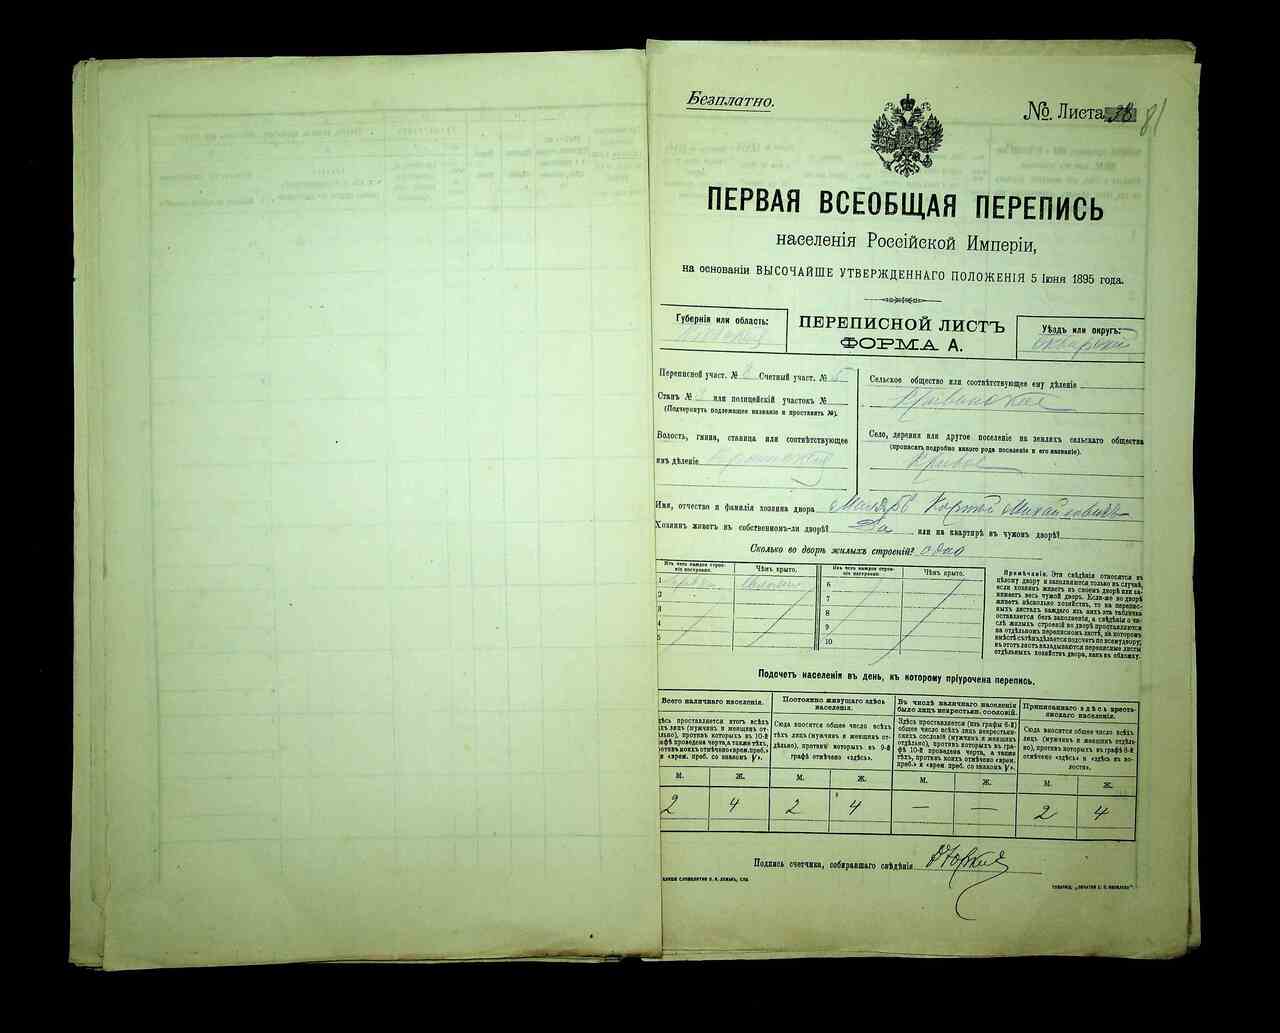 Безплатно.
№. Листа 38 81
ПЕРВАЯ ВСЕОБЩАЯ ПЕРЕПИСЬ
населенія Россійской Имперіи,
на основаніи ВЫСОЧАЙШЕ УТВЕРЖДЕННАГО ПОЛОЖЕНІЯ 5 Іюня 1895 года.
Губернія или область:
ПЕРЕПИСНОЙ ЛИСТЪ
ФОРМА А.
Уѣздъ или округъ:
Переписной участ. № 8 Счетный участ. № 5
Станъ № 3 или полицейскій участокъ №
(Подчеркнуть подлежащее названіе и проставить №).
Волость, гмина, станица или соотвѣтствующее
имъ дѣленіе
Сельское общество или соотвѣтствующее ему дѣленіе
Село, деревня или другое поселеніе на земляхъ сельскаго общества
(прописать подробно какого рода поселеніе и его названіе).
Имя, отчество и фамилія хозяина двора Михайловичъ
Хозяинъ живетъ въ собственномъ-ли дворѣ? Да или на квартирѣ въ чужомъ дворѣ?
Сколько во дворѣ жилыхъ строеній? одно
Изъ чего каждое строеніе построено.
Чѣмъ крыто.
Изъ чего каждое строеніе построено.
Чѣмъ крыто.
1
2
3
4
5
6
7
8
9
10
Примѣчаніе. Эта свѣдѣнія относятся къ
цѣлому двору и заполняются только въ случаѣ,
если хозяинъ живетъ въ своемъ дворѣ или за-
нимаетъ весь чужой дворъ. Если-же во дворѣ
живетъ нѣсколько хозяйствъ, то на перепис-
ныхъ листахъ каждаго изъ нихъ эта табличка
оставляется безъ заполненія, а свѣдѣнія о чи-
слѣ жилыхъ строеній во дворѣ проставляются
на отдѣльномъ переписномъ листѣ, на которомъ
вмѣстѣ съ тѣмъ дѣлается подсчетъ по всему двору;
въ этотъ листъ вкладываются переписные листы
отдѣльныхъ хозяйствъ двора, какъ въ обложку.
Подсчетъ населенія въ день, къ которому пріурочена перепись.
Всего наличнаго населенія.
дѣсь проставляется итогъ всѣхъ
хъ лицъ (мужчинъ и женщинъ от-
дѣльно), противъ которыхъ въ 10-й
афѣ проведена черта, а также тѣхъ,
отивъ коихъ отмѣчено «врем. преб.»
и «врем. преб. со знакомъ V».
Постоянно живущаго здѣсь
населенія.
Сюда вносится общее число всѣхъ
тѣхъ лицъ (мужчинъ и женщинъ от-
дѣльно), противъ которыхъ въ 9-й
графѣ отмѣчено «здѣсь».
Въ числѣ наличнаго населенія
было лицъ некрестьян. сословій.
Здѣсь проставляется (изъ графы 6-й)
общее число всѣхъ лицъ некрестьян-
скихъ сословій (мужчинъ и женщинъ
отдѣльно), противъ которыхъ въ гра-
фѣ 10-й проведена черта, а также
тѣхъ, противъ коихъ отмѣчено «врем.
преб.» и «врем. преб. со знакомъ V».
Приписаннаго здѣсь кресть-
янскаго населенія.
Сюда вносится общее число всѣхъ
лицъ (мужчинъ и женщинъ отдѣль-
но), противъ которыхъ въ графѣ 8-й
отмѣчено «здѣсь» и «здѣсь въ во-
лости».
М. Ж. М. Ж. М. Ж. М. Ж.
2 4 2 4 — — 2 4
Подпись счетчика, собиравшаго свѣдѣнія